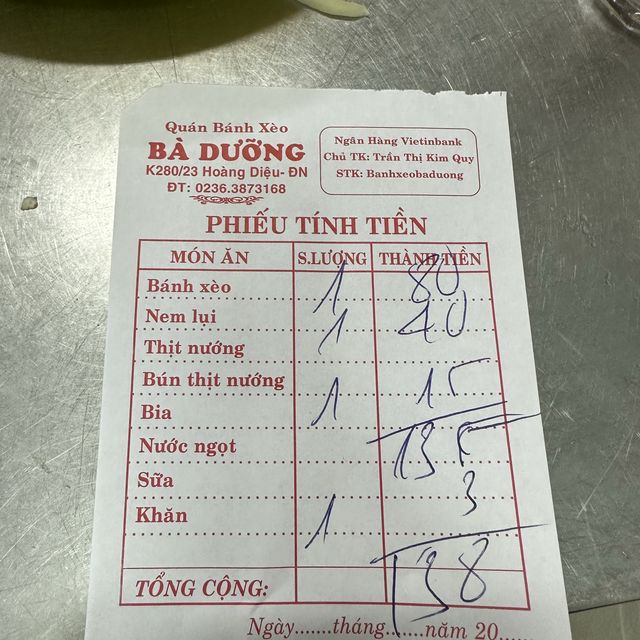 Quán Bánh Xèo
BÀ DƯỠNG
K280/23 Hoàng Diệu- ĐN
ĐT: 0236.3873168
Ngân Hàng Vietinbank
Chủ TK: Trần Thị Kim Quy
STK: Banhxeobaduong
PHIẾU TÍNH TIỀN
MÓN ĂN S.LƯỢNG THÀNH TIỀN
Bánh xèo 1 80
Nem lụi 1 40
Thịt nướng
Bún thịt nướng
Bia 1 15
Nước ngọt 135
Sữa 3
Khăn 1
138
TỔNG CỘNG:
Ngày.......tháng.......năm 20......